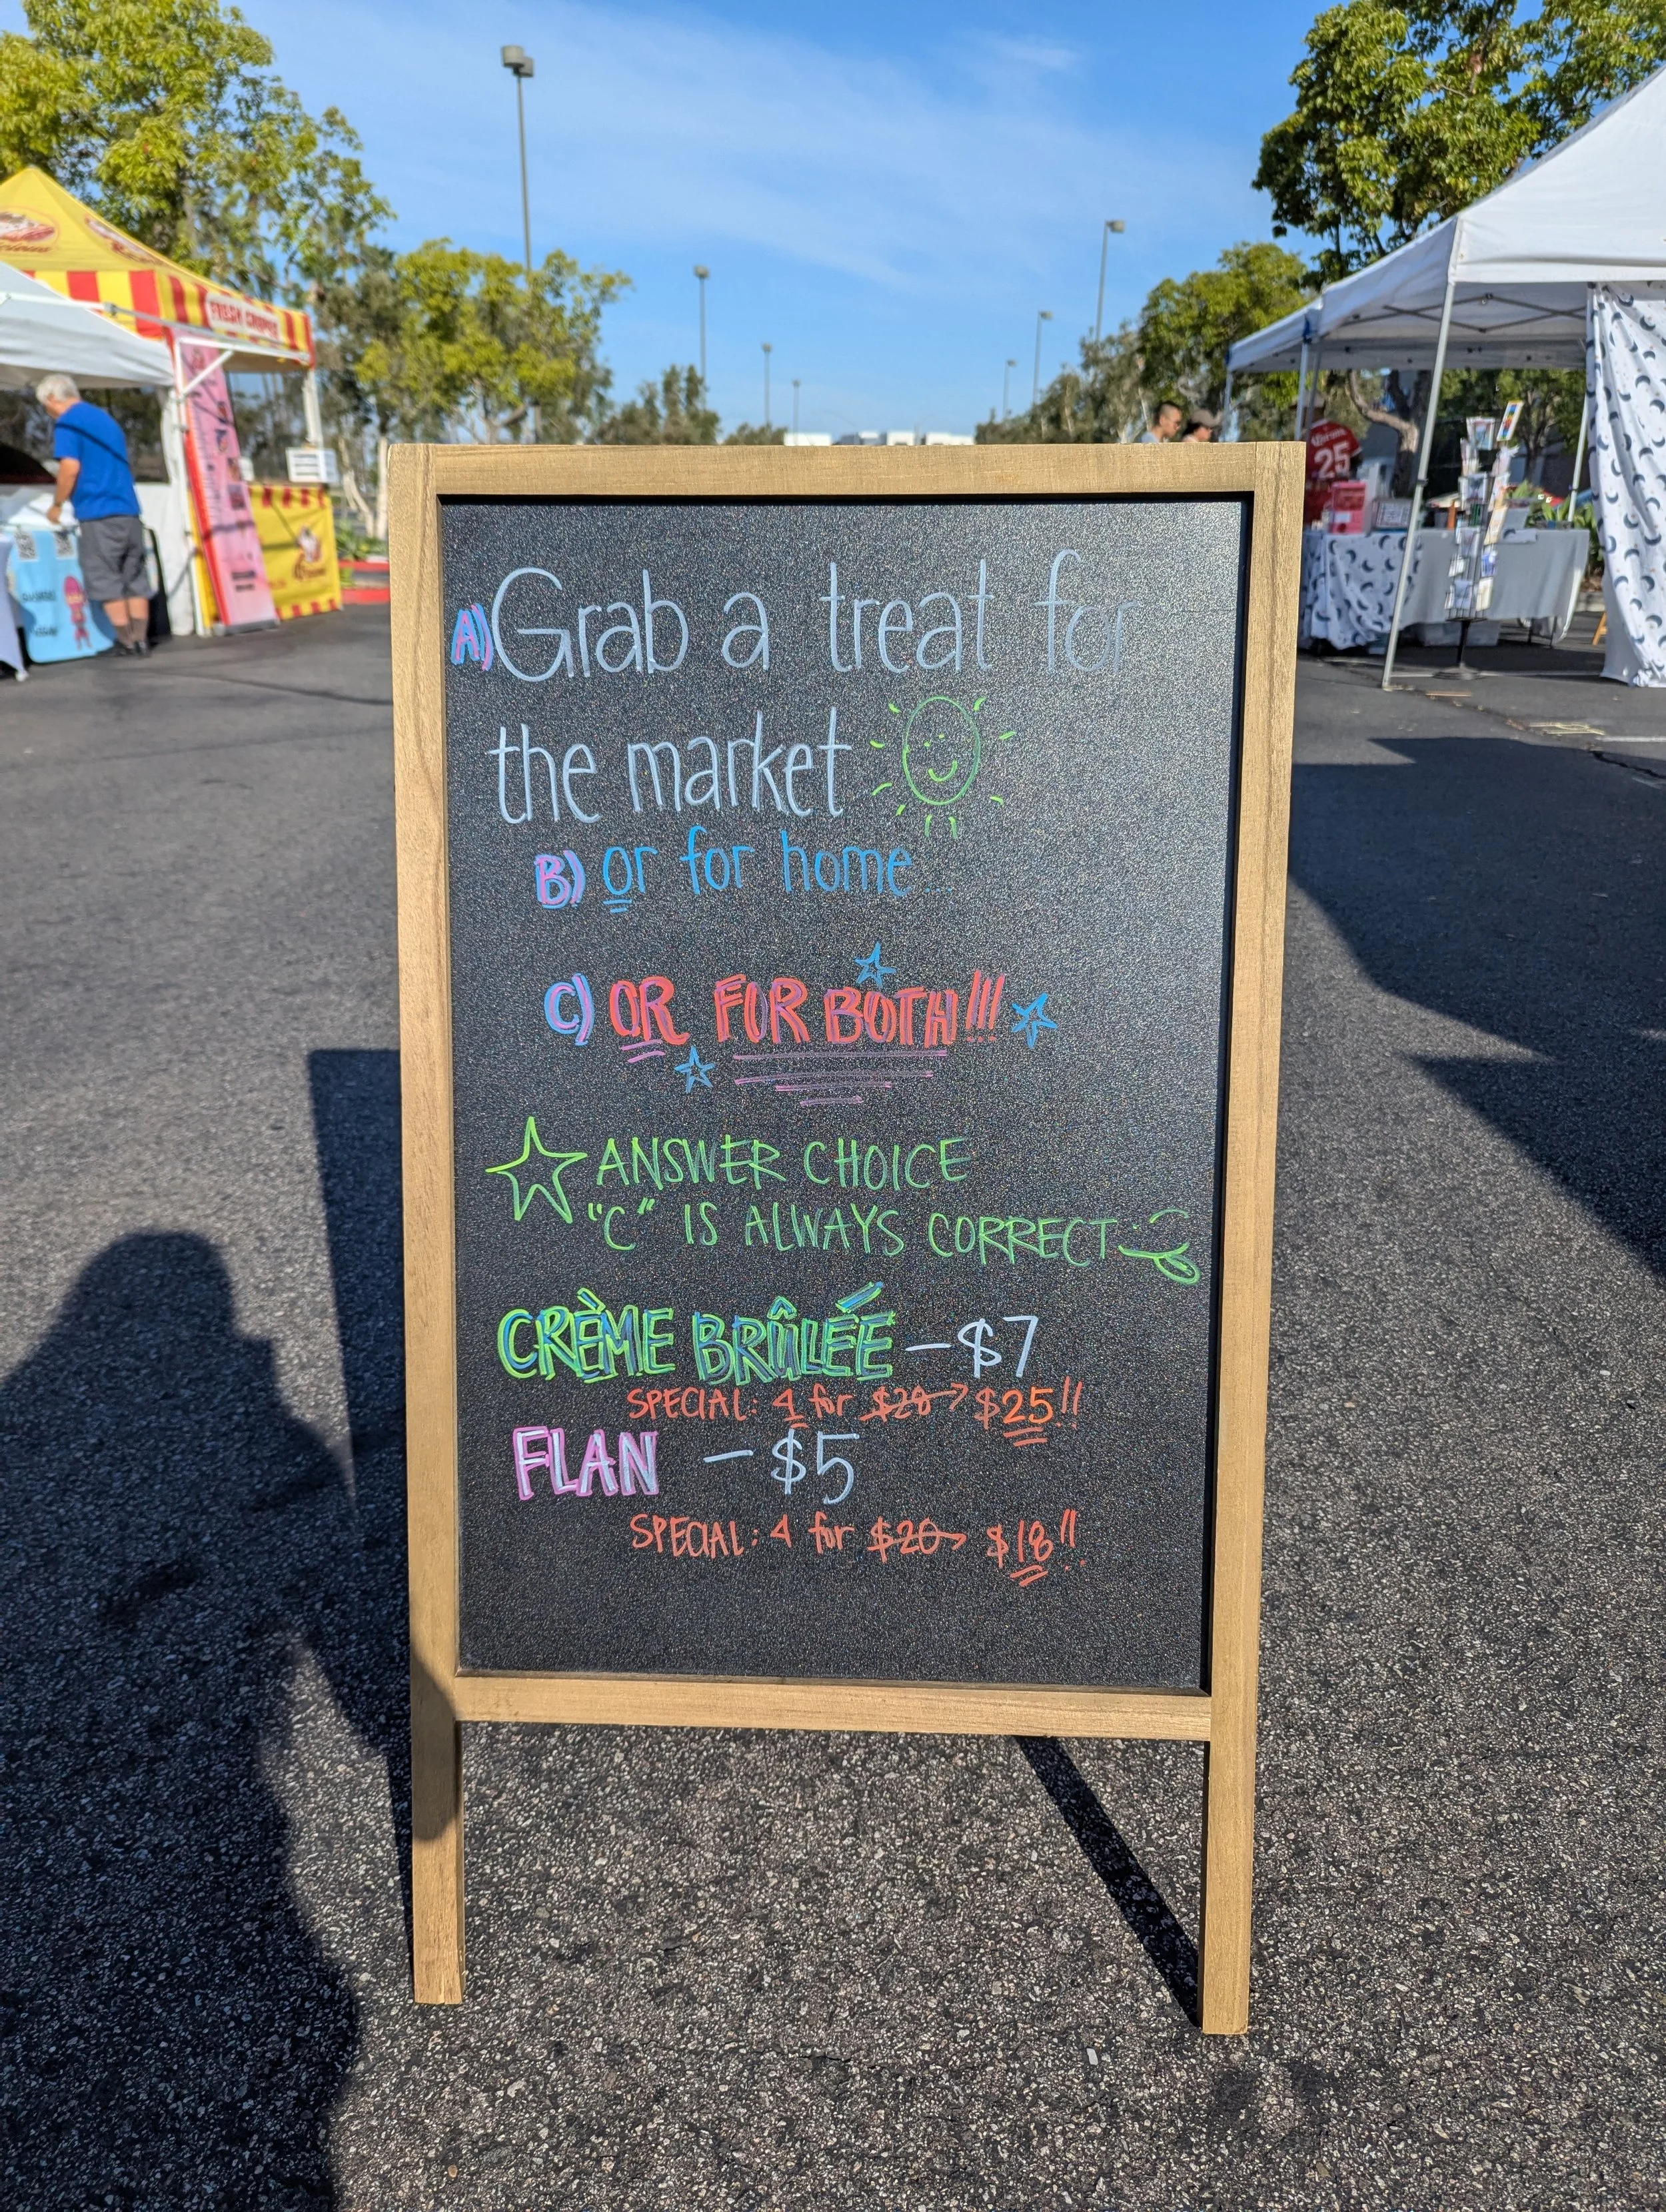 A) Grab a treat for
the market
B) or for home...
C) OR FOR BOTH!!!
ANSWER CHOICE
"C" IS ALWAYS CORRECT
CRÈME BRÛLÉE - $7
SPECIAL: 4 for $28 → $25!!
FLAN - $5
SPECIAL: 4 for $20 → $18!!
FRESH CREPES
25